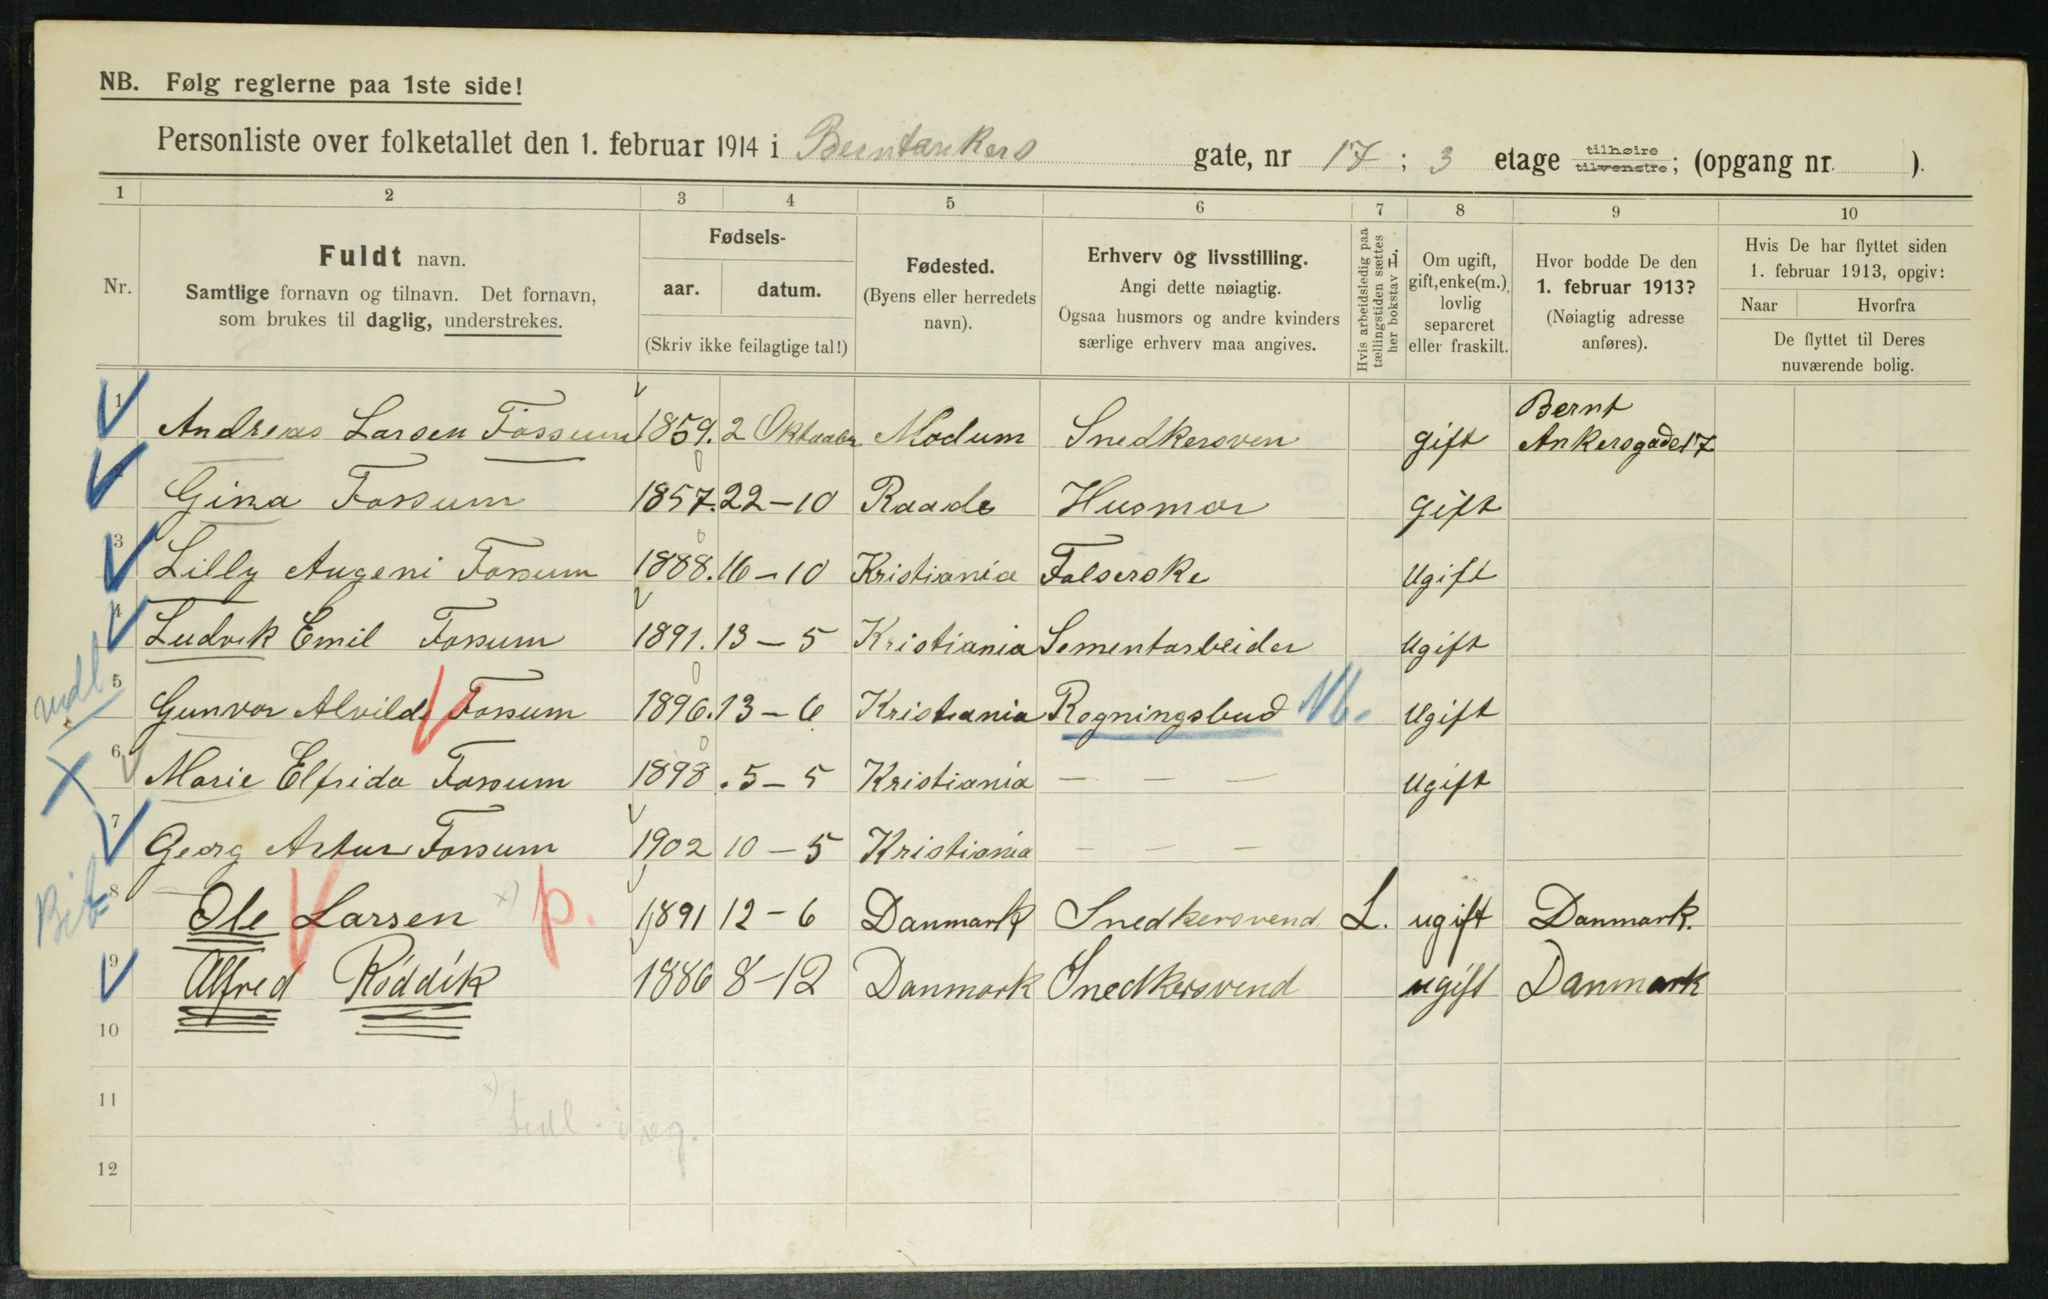 NB. Følg reglerne paa 1ste side!
Personliste over folketallet den 1. februar 1914 i Berntankers gate, nr 17 ; 3 etage tilhøire tilvenstre; (opgang nr. ).
1 2 3 4 5 6 7 8 9 10
Nr.
Fuldt navn.
Samtlige fornavn og tilnavn. Det fornavn,
som brukes til daglig, understrekes.
Fødsels-
aar. datum.
(Skriv ikke feilagtige tal!)
Fødested.
(Byens eller herredets
navn).
Erhverv og livsstilling.
Angi dette nøiagtig.
Ogsaa husmors og andre kvinders
særlige erhverv maa angives.
Hvis arbeidsledig paa
tællingstiden sættes
her bokstav L.
Om ugift,
gift, enke(m.),
lovlig
separeret
eller fraskilt.
Hvor bodde De den
1. februar 1913?
(Nøiagtig adresse
anføres).
Hvis De har flyttet siden
1. februar 1913, opgiv:
Naar Hvorfra
De flyttet til Deres
nuværende bolig.
1 Andreas Larsen Fossum 1859. 2 Oktober Modum Snedkersven gift Bernt Ankersgade 17
Gina Fossum 1857. 22-10 Raade Husmor gift
3 Lilly Augeni Fossum 1888. 16-10 Kristiania Falserske Ugift
4 Ludvik Emil Fossum 1891. 13-5 Kristiania Sementarbeider Ugift
udl.
5 Gunvor Alvilde Fossum 1896. 13-6 Kristiania Regningsbud Nb. Ugift
6 Marie Elfrida Fossum 1898. 5-5 Kristiania — — — Ugift
7 Georg Artur Fossum 1902 10-5 Kristiania — — —
8 Ole Larsen x) p. 1891 12-6 Danmark Snedkersvend L. ugift Danmark.
9 Alfred Röddik 1886 8-12 Danmark Snedkersvend ugift Danmark
10
11
x)
12